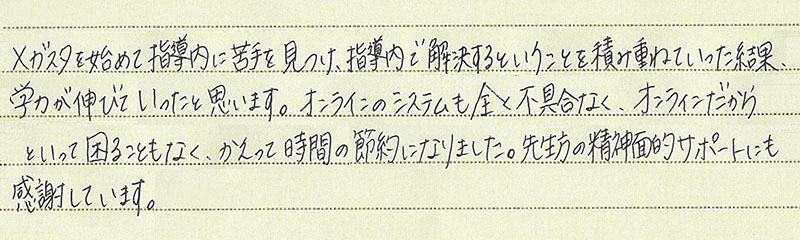 メガスタを始めて指導内に苦手を見つけ、指導内で解決するということを積み重ねていった結果、
学力が伸びていったと思います。オンラインのシステムも全く不具合なく、オンラインだから
といって困ることもなく、かえって時間の節約になりました。先生方の精神面的サポートにも
感謝しています。